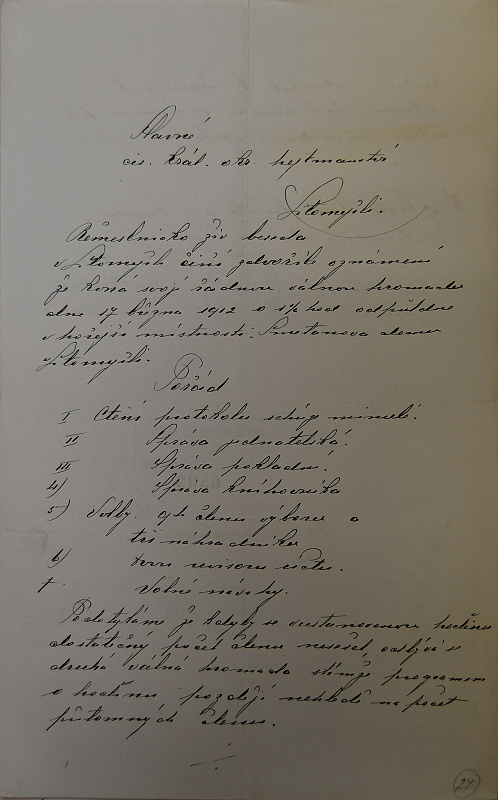 Slavné
cís. král. okr. hejtmanství
v Litomyšli.
Řemeslnicko živ beseda
v Litomyšli činí zdvořilé oznámení
že koná svoji řádnou valnou hromadu
dne 17 března 1912 o 1½ hod odpůldne
v hořejší místnosti Smetanova domu
v Litomyšli.
Pořad
I Čtení protokolu schůze minulé.
II Správa jednatelská.
III Správa pokladní.
4) Správa knihovníka
5) Volby 9ti členů výboru a
tří náhradníku
6) dvou revisorů účtu.
7. Volné návrhy.
Podotýkáme že kdyby se v ustanovenou hodinu
dostatečný počet členu nesešel, odbývá se
druhá valná hromada stímže programem
o hodinu později nehledě na počet
přítomných členu.
27